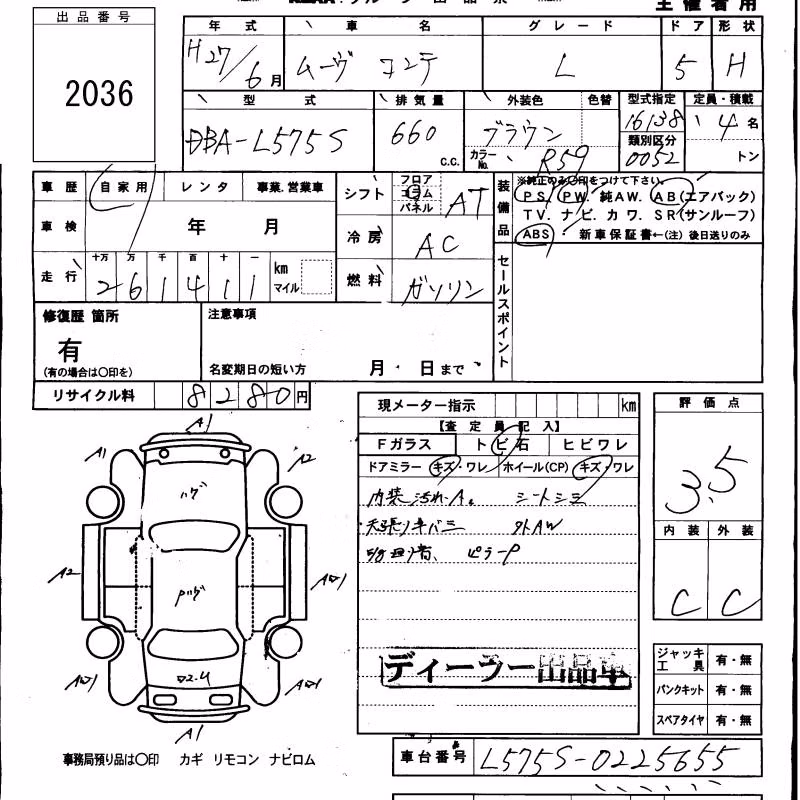 主催者用
出品番号
2036
年式 車名 グレード ドア 形状
H27/6月 ムーヴ コンテ L 5 H
型式 排気量 外装色 色替 型式指定 定員・積載
DBA-L575S 660 c.c. ブラウン 16138 4名
カラーNo. R59 類別区分 0052 トン
車歴 自家用 レンタ 事業.営業車
車検 年 月
走行 十万 万 千 百 十 一 km マイル
261411
シフト フロア コラム パネル AT
冷房 AC
燃料 ガソリン
装備品 ※純正のみ○印をつけて下さい。
PS. PW. 純AW. AB(エアバック)
TV. ナビ. カワ. SR(サンルーフ)
ABS 新車保証書←(注) 後日送りのみ
セールスポイント
修復歴 箇所
有
(有の場合は○印を)
注意事項
名変期日の短い方 月 ・ 日まで
リサイクル料 8280円
現メーター指示 km
【査定員記入】
Fガラス トビ石 ヒビワレ
ドアミラー キズ・ワレ ホイール(CP) キズ・ワレ
内装汚れ・A。 シートシミ
天張リキバミ 外AW
ピラーP
ディーラー出品車
評価点
3.5
内装 外装
C C
A1
A1 A2
ハゲ
A2
Pハゲ
A1
ジャッキ工具 有・無
パンクキット 有・無
スペアタイヤ 有・無
事務局預り品は○印 カギ リモコン ナビロム
車台番号 L575S-0225655